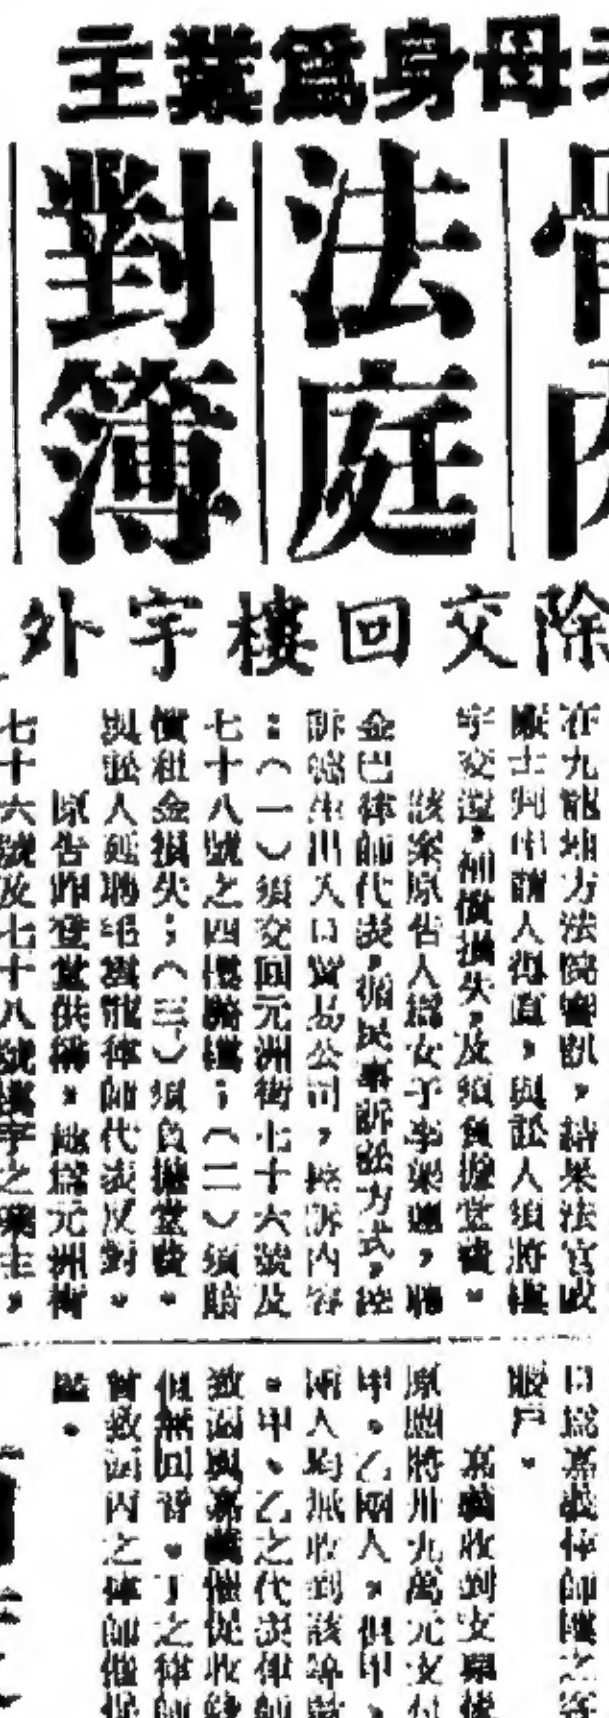 母身為業主
法庭
對簿
除交回樓宇外
在九龍地方法院審訊，結果法官戚
士判申請人得直，與訟人須將樓
宇交還，補償損失，及須負擔堂費。
該案原告人為女子李　　，聘
金巴律師代表，循民事訴訟方式，控
訴　生出入口貿易公司，控訴內容
：（一）須交回元洲街七十六號及
七十八號之四樓騎樓；（二）須賠
償租金損失；（三）須負擔堂費。
與訟人延聘　　　律師代表反對。
原告昨登堂供稱，她為元洲街
七十六號及七十八號樓宇之業主，
口為嘉　律師樓之客
賬戶。
嘉　收到支票後
原應將卅九萬元支付
甲、乙兩人，但甲、
兩人均無收到該筆款
。甲、乙之代表律師
致函與嘉　催促收錢
但無回音。丁之律師
曾致函丙之律師催促